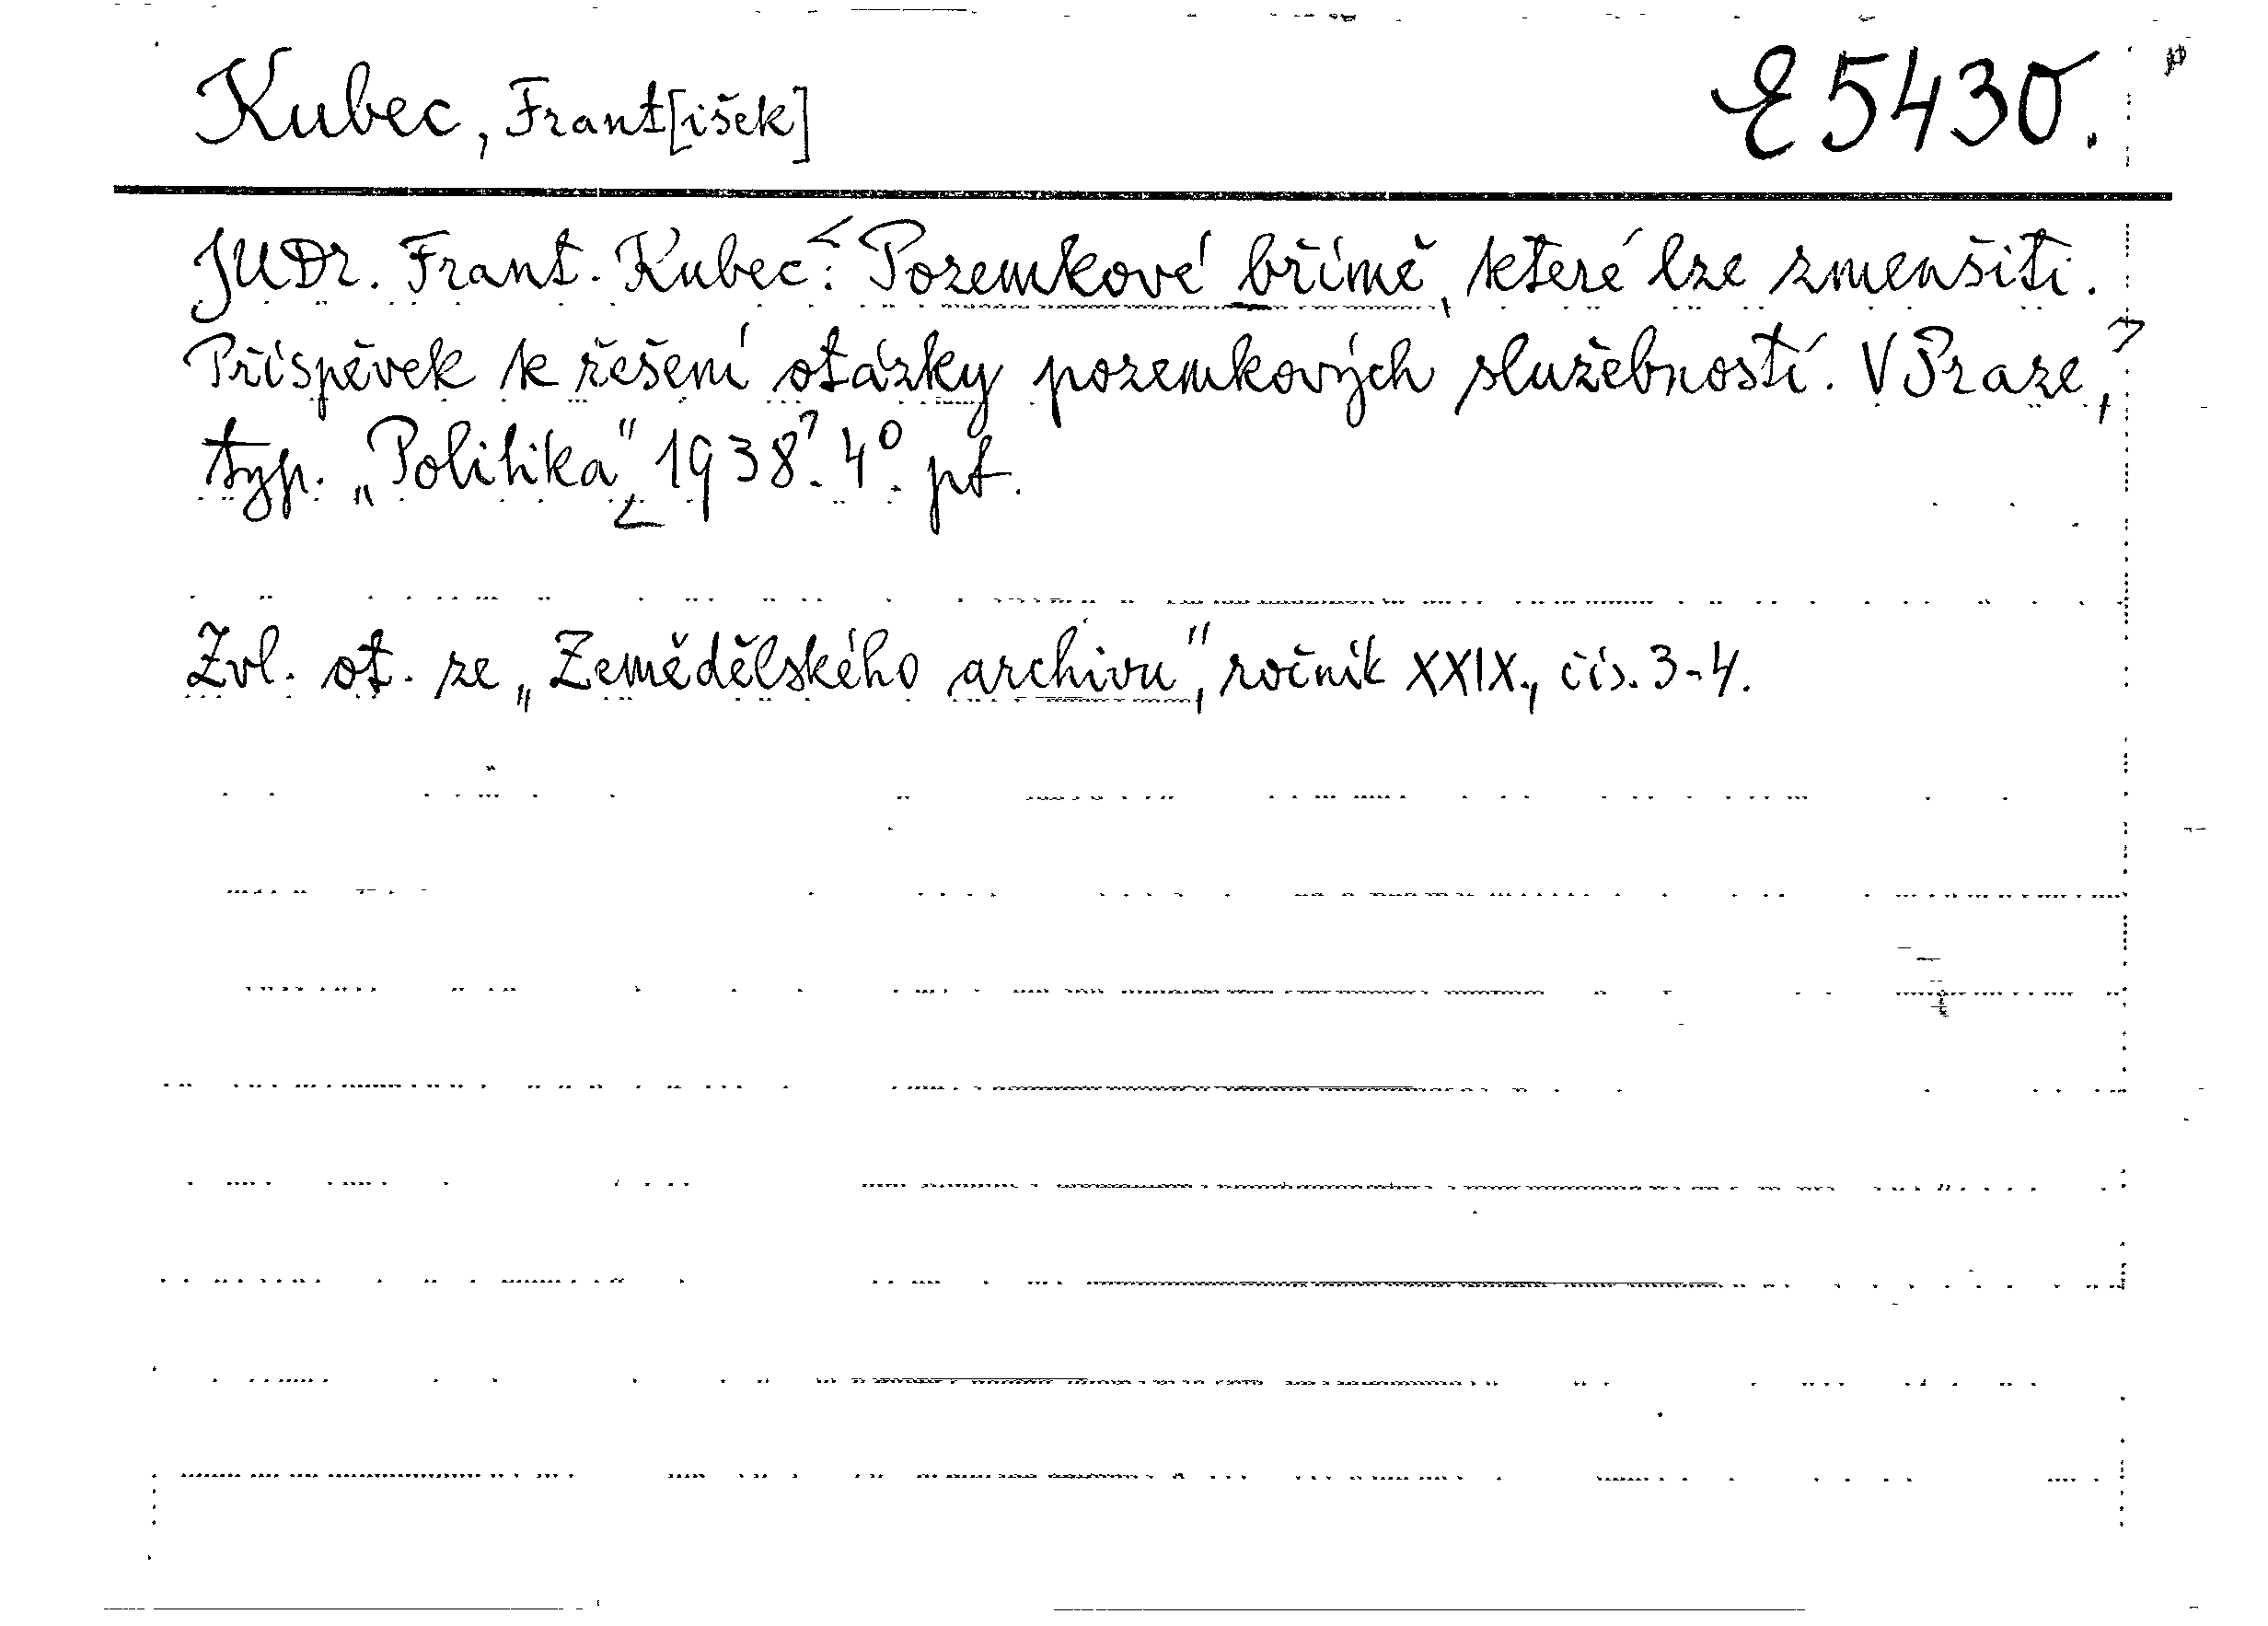 Kubec, Frant[išek] E 5430.
JUDr. Frant. Kubec: Pozemkové břímě, které lze zmenšiti.
Příspěvek k řešení otázky pozemkových služebností. V Praze,
typ. „Politika" 1938. 4°. pt.
Zvl. ot. ze „Zemědělského archivu", ročník XXIX., čís. 3-4.